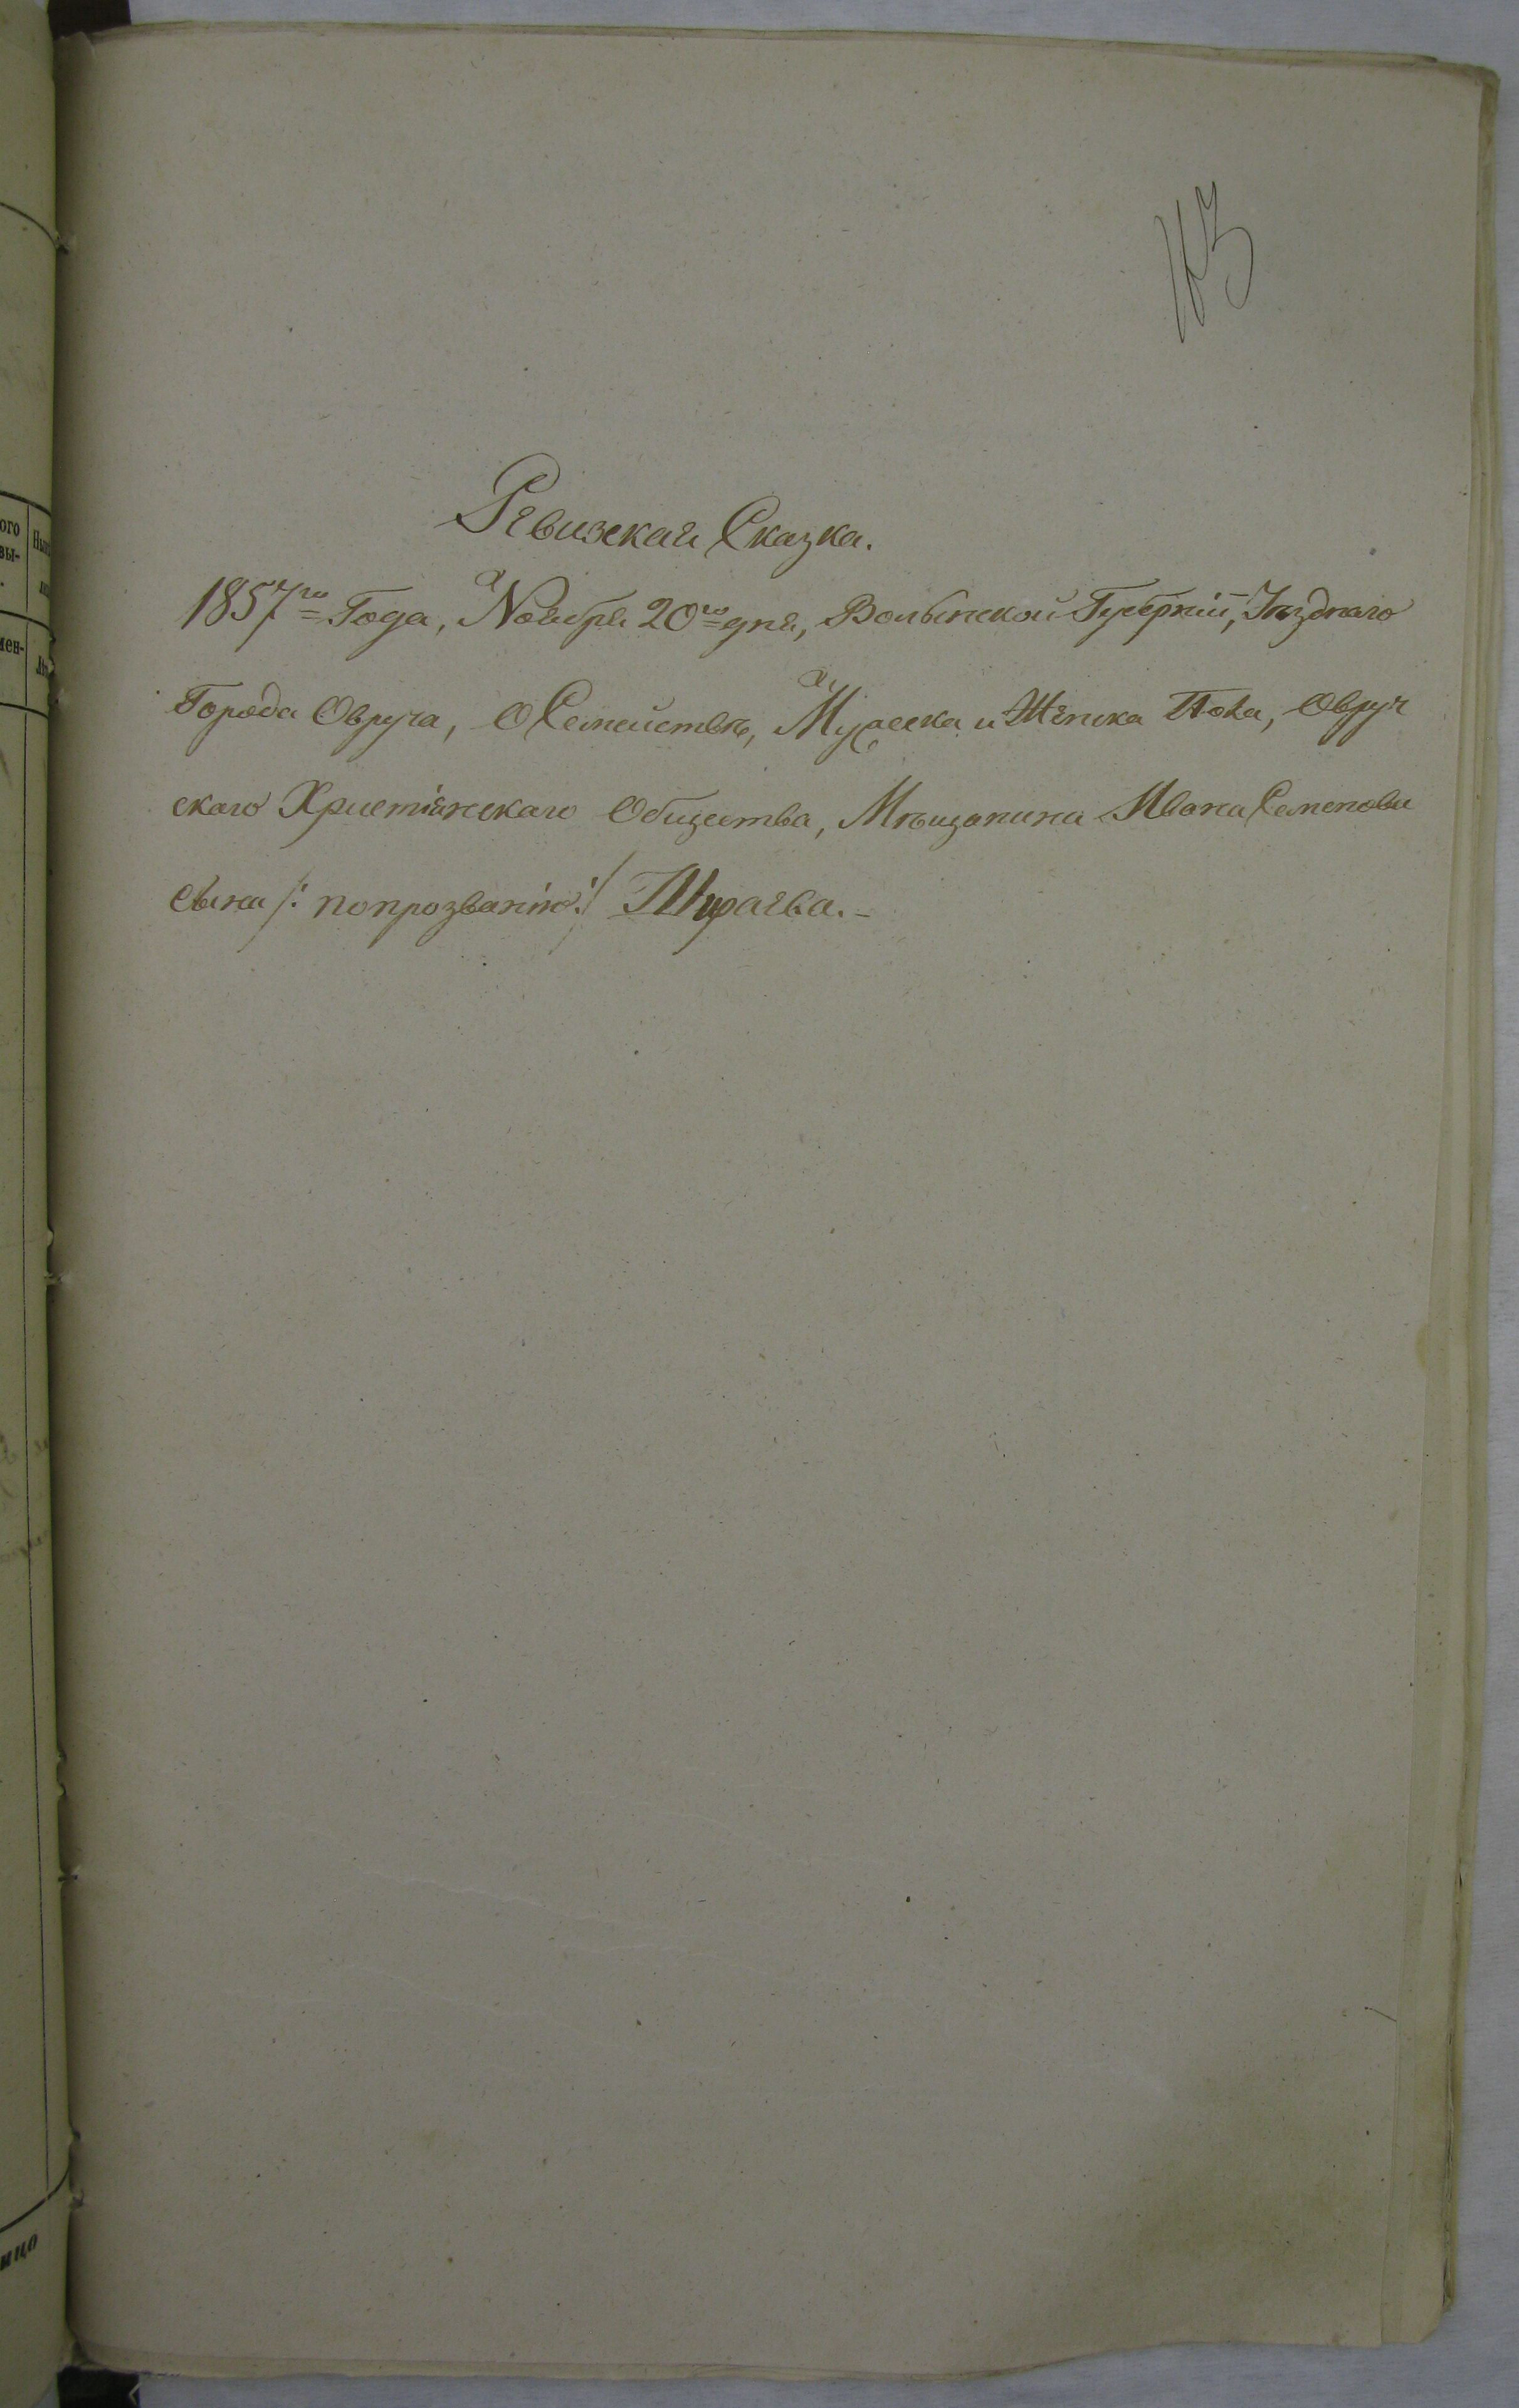 163
Ревизская Сказка.
1857го Года, Ноября 20го дня, Волынской Губерніи, Уѣзднаго
Города Овруча, О Семействѣ, Мужеска и Женска Пола, Овруч
скаго Христіянскаго Общества, Мѣщанина Ивана Семенова
сына /: попрозванію :/
ого
вы-
мен-